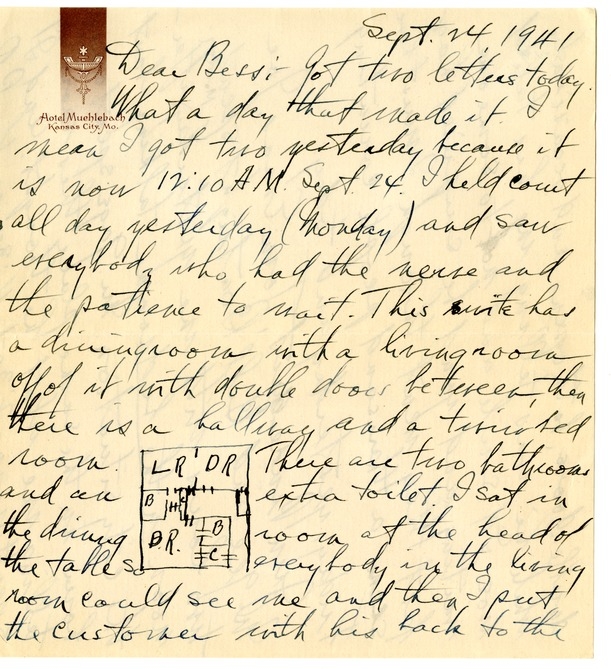 Sept. 24, 1941
Hotel Muehlebach
Kansas City, Mo.
Dear Bess:- Got two letters today.
What a day that made it. I
mean I got two yesterday because it
is now 12:10 A.M. Sept. 24. I held court
all day yesterday (Monday) and saw
everybody who had the nerve and
the patience to wait. This suite has
a diningroom with a livingroom
off of it with double doors between, then
there is a hallway and a twin bed
room. There are two bathrooms
and an extra toilet. I sat in
the dining room at the head of
the table so everybody in the living
room could see me and then I put
the customer with his back to the
LR DR
B C
BR. B
C